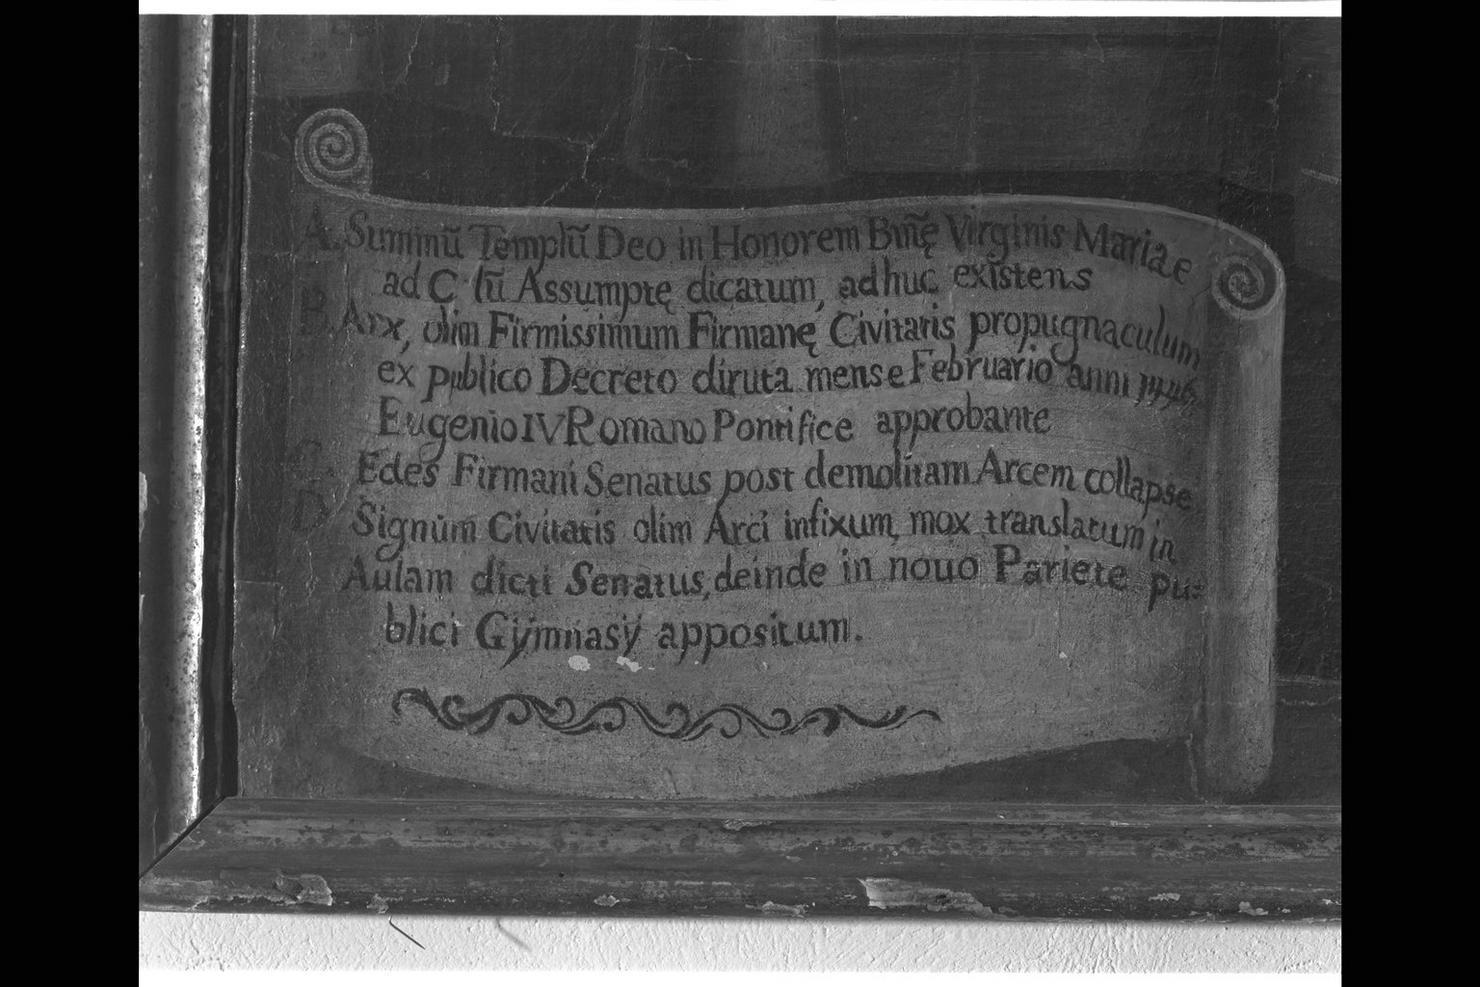 A. Summū Templū Deo in Honorem Bm̃ę Virginis Mariae
ad C lū Assumptę dicatum, adhuc existens
B. Arx, olim Firmissimum Firmanę Civitatis propugnaculum
ex publico Decreto diruta mense Februario anni 1446
Eugenio IV Romano Pontifice approbante
C. Edes Firmani Senatus post demolitam Arcem collapse
D. Signum Civitatis olim Arci infixum, mox translatum in
Aulam dicti Senatus, deinde in nouo Pariete pu=
blici Gÿmnasÿ appositum.